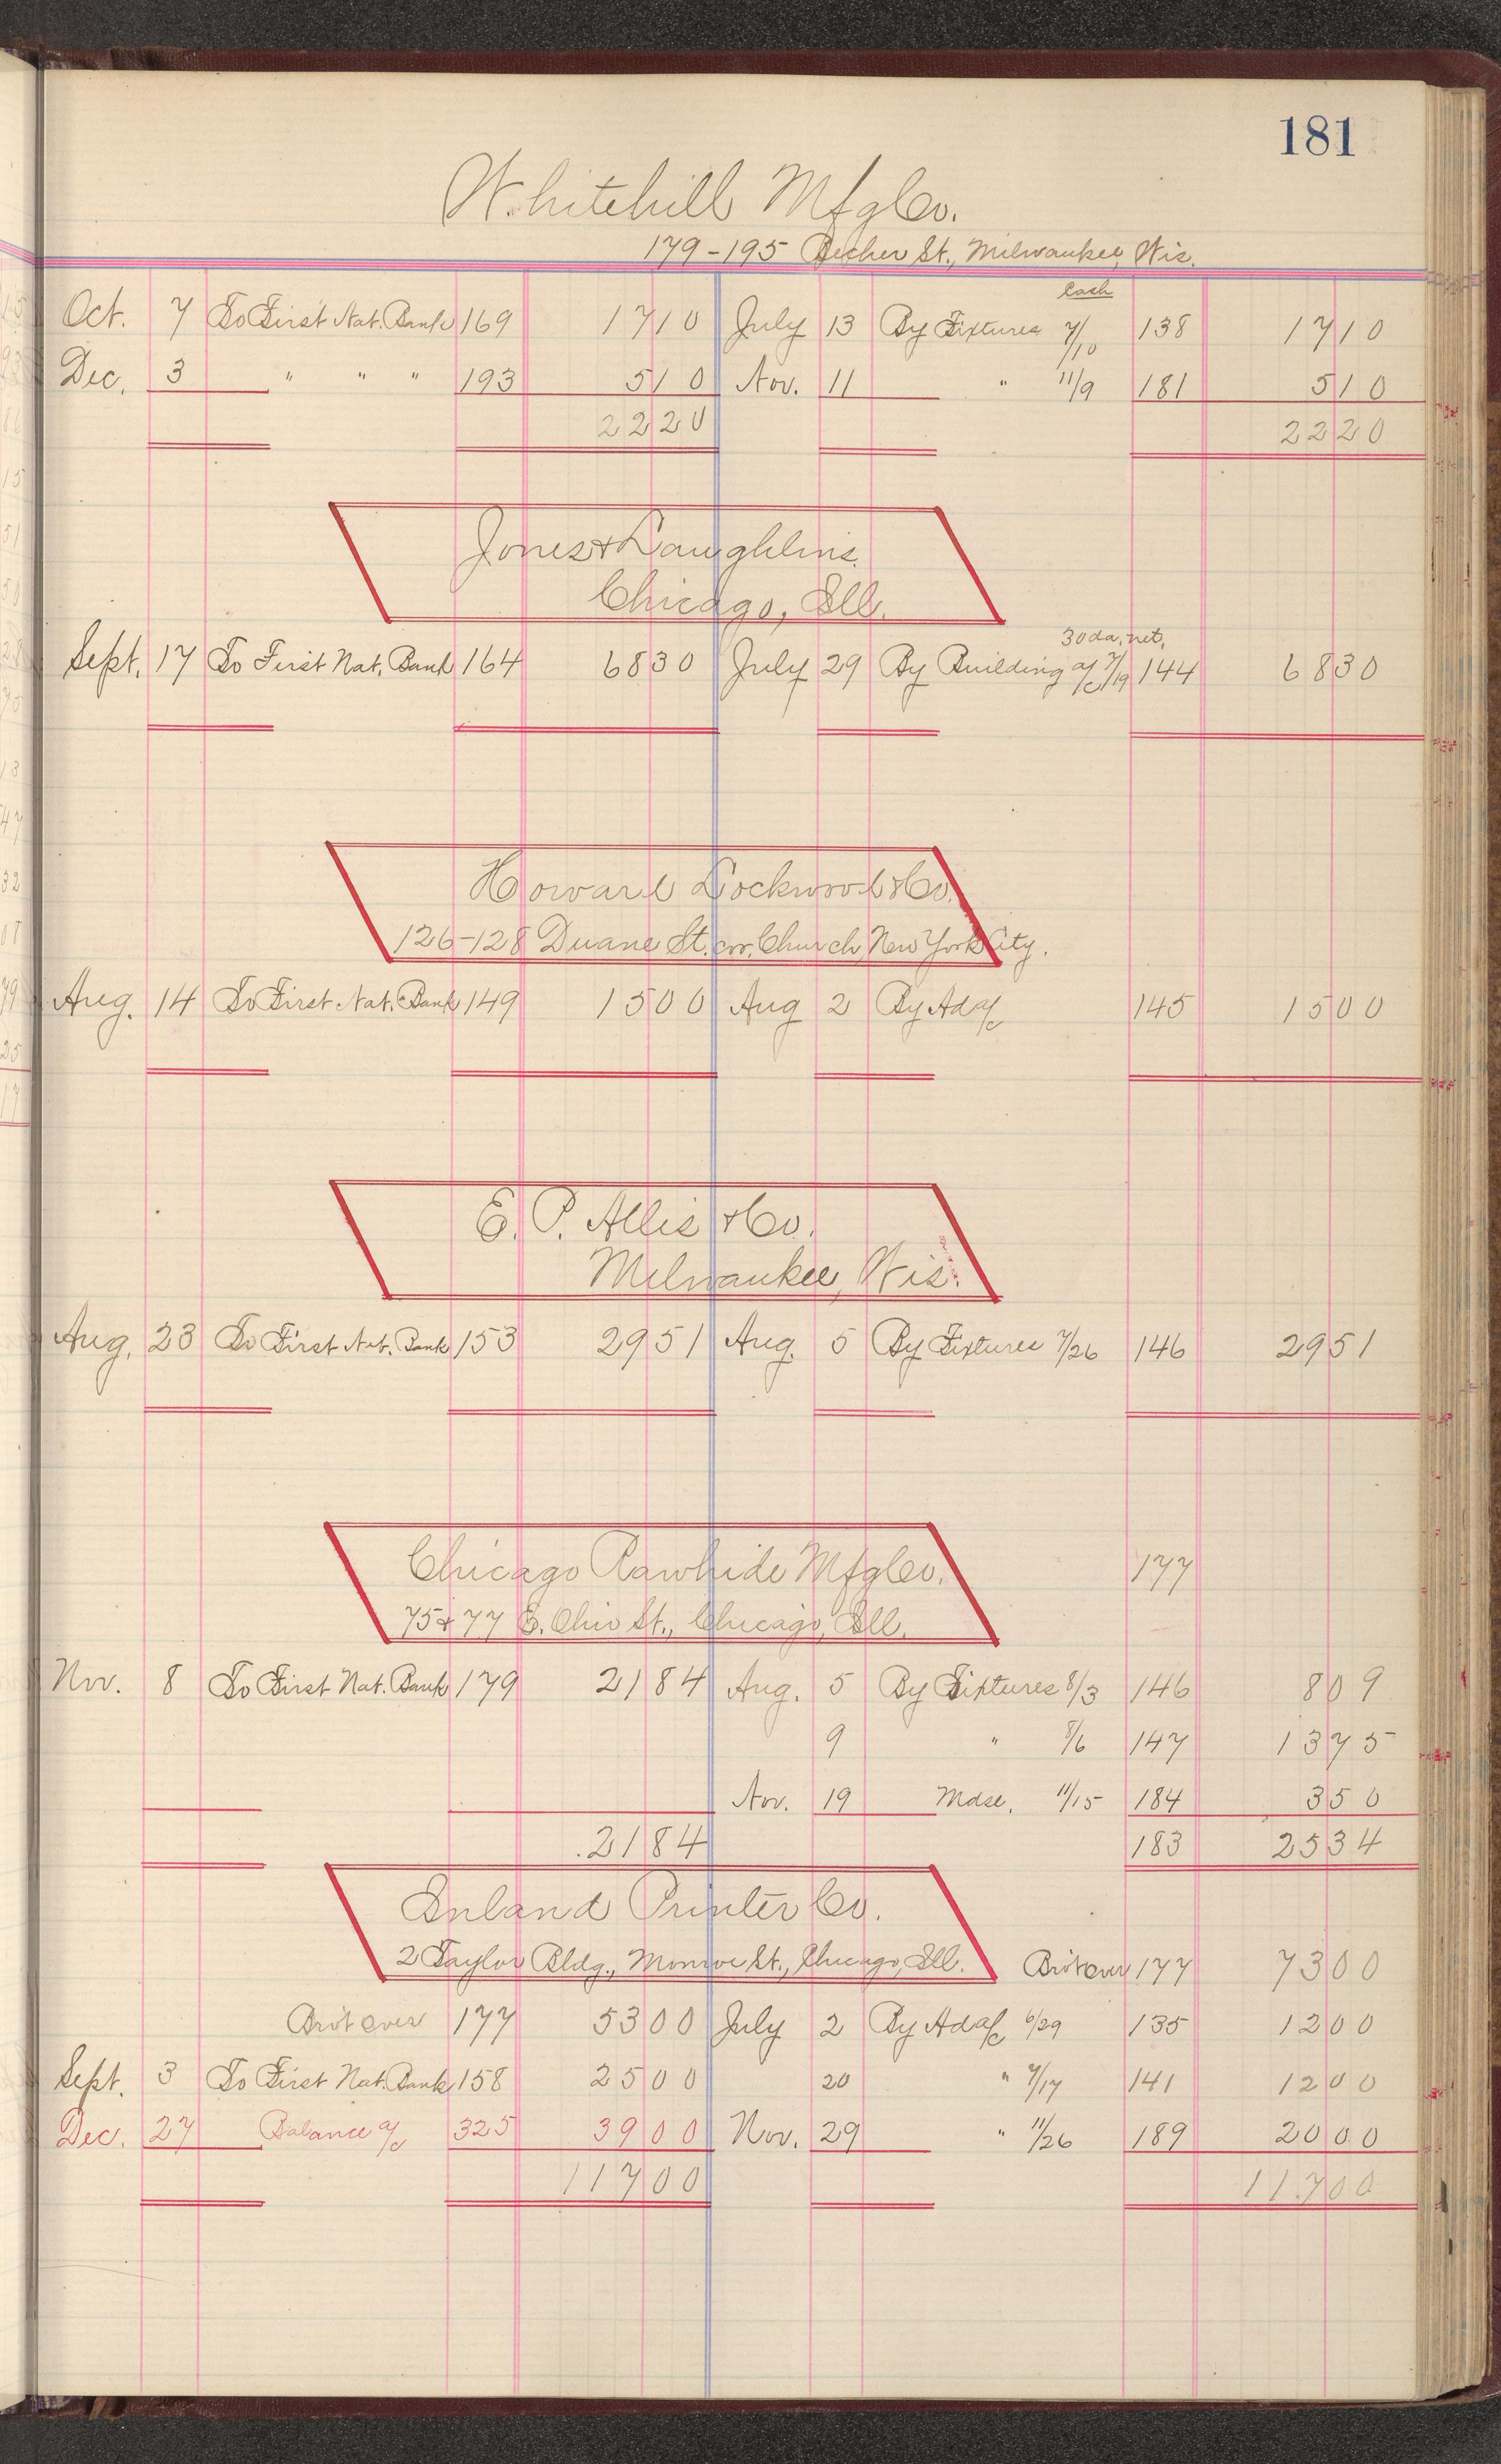 181
Whitehill Mfg Co.
179-195 Becher St., Milwaukee, Wis.
Cash
Oct. 7 To First Nat. Bank 169 1710 July 13 By Fixtures 7/10 138 1710
Dec. 3 " " " 193 510 Nov. 11 " 11/9 181 510
2220 2220
Jones & Laughlins.
Chicago, Ill.
30 da. net.
Sept. 17 To First Nat. Bank 164 6830 July 29 By Building a/c 7/19 144 6830
Howard Lockwood & Co.
126-128 Duane St. cor. Church, New York City.
Aug. 14 To First Nat. Bank 149 1500 Aug 2 By Ad a/c 145 1500
E. P. Allis & Co.
Milwaukee, Wis.
Aug. 23 To First Nat. Bank 153 2951 Aug. 5 By Fixtures 7/26 146 2951
Chicago Rawhide Mfg Co. 177
75 & 77 E. Ohio St., Chicago, Ill.
Nov. 8 To First Nat. Bank 179 2184 Aug. 5 By Fixtures 8/3 146 809
9 " 8/6 147 1375
Nov. 19 Mdse. 11/15 184 350
2184 183 2534
Inland Printer Co.
2 Taylor Bldg., Monroe St., Chicago, Ill. Bro't over 177 7300
Bro't over 177 5300 July 2 By Ad a/c 6/29 135 1200
Sept. 3 To First Nat. Bank 158 2500 20 " 7/17 141 1200
Dec. 27 Balance a/c 325 3900 Nov. 29 " 11/26 189 2000
11700 11700